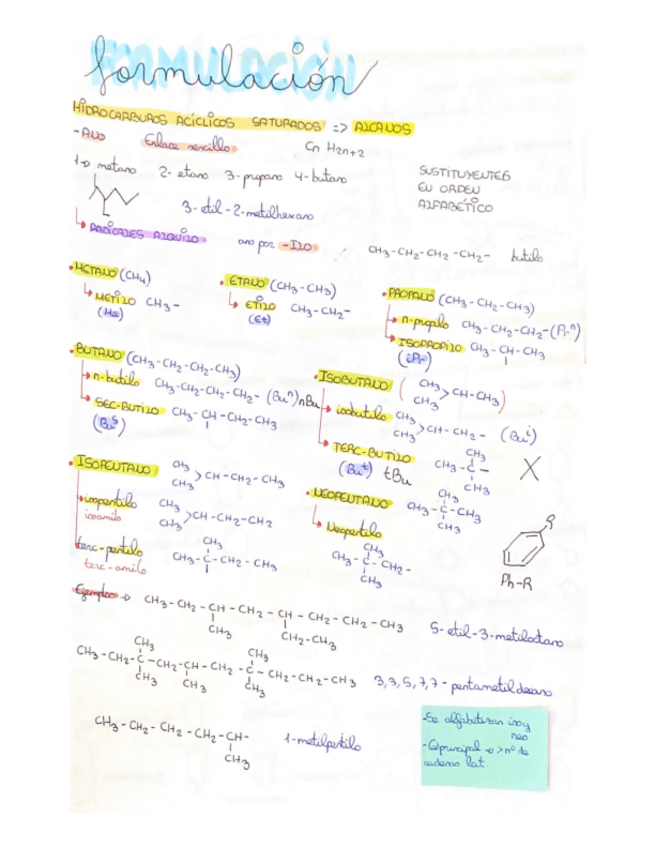 formulación
HIDROCARBUROS ACÍCLICOS SATURADOS => ALCANOS
-ANO Enlace sencillo Cn H2n+2
1→ metano 2- etano 3-propano 4-butano
SUSTITUYENTES
EN ORDEN
ALFABÉTICO
3-etil-2-metilhexano
RADICALES ALQUILO ano por -ILO CH3-CH2-CH2-CH2- butilo
• METANO (CH4)
METILO CH3-
(Me)
• ETANO (CH3-CH3)
ETILO CH3-CH2-
(Et)
• PROPANO (CH3-CH2-CH3)
n-propilo CH3-CH2-CH2-(Prⁿ)
ISOPROPILO CH3-CH-CH3
(iPr)
• BUTANO (CH3-CH2-CH2-CH3)
n-butilo CH3-CH2-CH2-CH2- (Buⁿ) nBu
SEC-BUTILO CH3-CH-CH2-CH3
(Buˢ)
• ISOBUTANO (CH3
CH3 >CH-CH3)
isobutilo CH3
CH3 >CH-CH2- (Buⁱ)
TERC-BUTILO
(Buᵗ) tBu
CH3
CH3-C-
CH3
• ISOPENTANO CH3
CH3 >CH-CH2-CH3
isopentilo CH3
isoamilo CH3 >CH-CH2-CH2
terc-pentilo
terc-amilo
CH3
CH3-C-CH2-CH3
• NEOPENTANO
CH3
CH3-C-CH3
CH3
Neopentilo
CH3
CH3-C-CH2-
CH3
R
Ph-R
Ejemplos → CH3-CH2-CH-CH2-CH-CH2-CH2-CH3
CH3 CH2-CH3
5-etil-3-metiloctano
CH3 CH3
CH3-CH2-C-CH2-CH-CH2-C-CH2-CH2-CH3
CH3 CH3 CH3
3,3,5,7,7-pentametildecano
CH3-CH2-CH2-CH2-CH-
CH3
1-metilpentilo
-Se alfabetizan iso y
neo
-C principal → >nº de
cadenas lat.